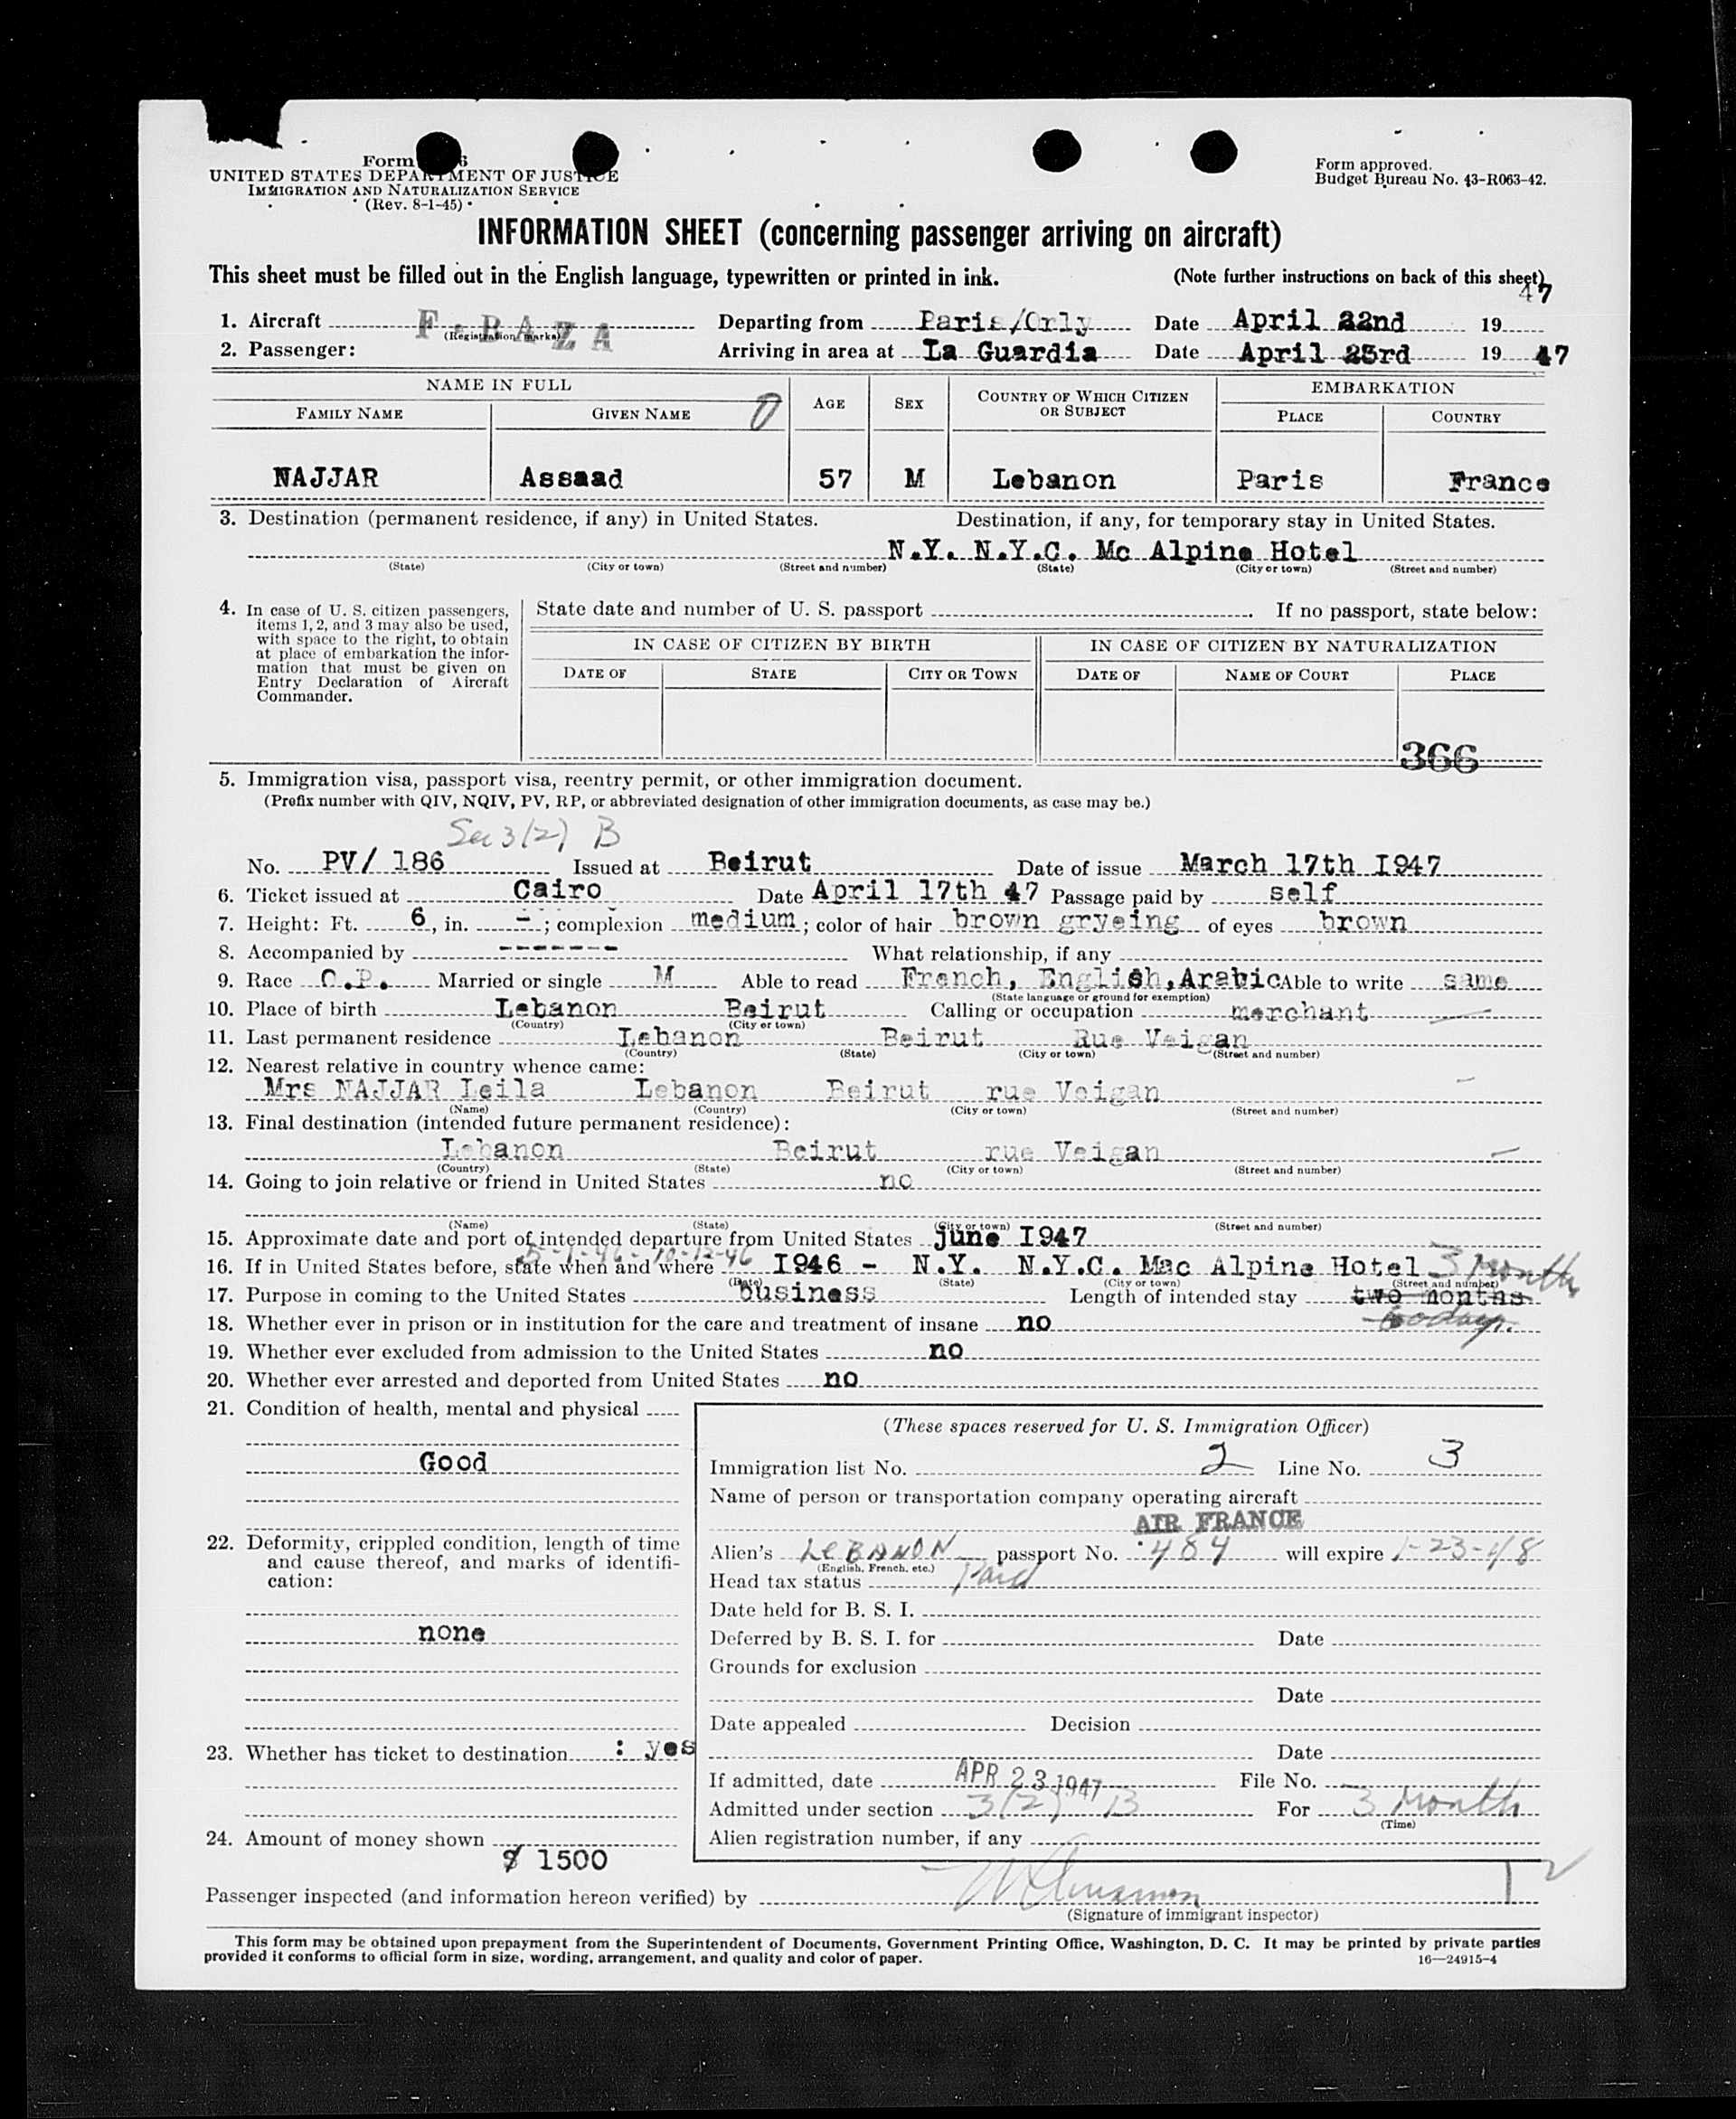 Form
UNITED STATES DEPARTMENT OF JUSTICE
IMMIGRATION AND NATURALIZATION SERVICE
(Rev. 8-1-45)
Form approved.
Budget Bureau No. 43-R063-42.
INFORMATION SHEET (concerning passenger arriving on aircraft)
This sheet must be filled out in the English language, typewritten or printed in ink. (Note further instructions on back of this sheet)
47
1. Aircraft F-BAZA Departing from Paris/Orly Date April 22nd 19
(Registration marks)
2. Passenger: Arriving in area at La Guardia Date April 23rd 19 47
NAME IN FULL AGE SEX COUNTRY OF WHICH CITIZEN OR SUBJECT EMBARKATION
FAMILY NAME GIVEN NAME PLACE COUNTRY
NAJJAR Assaad 57 M Lebanon Paris France
3. Destination (permanent residence, if any) in United States. Destination, if any, for temporary stay in United States.
N.Y. N.Y.C. Mc Alpine Hotel
(State) (City or town) (Street and number) (State) (City or town) (Street and number)
4. In case of U. S. citizen passengers, items 1, 2, and 3 may also be used, with space to the right, to obtain at place of embarkation the information that must be given on Entry Declaration of Aircraft Commander.
State date and number of U. S. passport . If no passport, state below:
IN CASE OF CITIZEN BY BIRTH IN CASE OF CITIZEN BY NATURALIZATION
DATE OF STATE CITY OR TOWN DATE OF NAME OF COURT PLACE
366
5. Immigration visa, passport visa, reentry permit, or other immigration document.
(Prefix number with QIV, NQIV, PV, RP, or abbreviated designation of other immigration documents, as case may be.)
Sec 3(2) B
No. PV/ 186 Issued at Beirut Date of issue March 17th I947
6. Ticket issued at Cairo Date April 17th 47 Passage paid by self
7. Height: Ft. 6, in. -; complexion medium; color of hair brown gryeing of eyes brown
8. Accompanied by ------- What relationship, if any
9. Race O.P. Married or single M Able to read French, English, Arabic Able to write same
(State language or ground for exemption)
10. Place of birth Lebanon Beirut Calling or occupation merchant
(Country) (City or town)
11. Last permanent residence Lebanon Beirut Rue Veigan
(Country) (State) (City or town) (Street and number)
12. Nearest relative in country whence came:
Mrs NAJJAR Leila Lebanon Beirut rue Veigan
(Name) (Country) (City or town) (Street and number)
13. Final destination (intended future permanent residence):
Lebanon Beirut rue Veigan
(Country) (State) (City or town) (Street and number)
14. Going to join relative or friend in United States no
(Name) (State) (City or town) (Street and number)
15. Approximate date and port of intended departure from United States june I947
16. If in United States before, state when and where I946 - N.Y. N.Y.C. Mac Alpine Hotel 3 Month
(Date) (State) (City or town) (Street and number)
17. Purpose in coming to the United States business Length of intended stay two months
60 days.
18. Whether ever in prison or in institution for the care and treatment of insane no
19. Whether ever excluded from admission to the United States no
20. Whether ever arrested and deported from United States no
21. Condition of health, mental and physical
Good
22. Deformity, crippled condition, length of time and cause thereof, and marks of identification:
none
23. Whether has ticket to destination : yes
24. Amount of money shown
$ 1500
(These spaces reserved for U. S. Immigration Officer)
Immigration list No. 2 Line No. 3
Name of person or transportation company operating aircraft
AIR FRANCE
Alien's LEBANON passport No. 484 will expire 1-23-48
(English, French, etc.)
Head tax status Paid
Date held for B. S. I.
Deferred by B. S. I. for Date
Grounds for exclusion
Date
Date appealed Decision
Date
If admitted, date APR 23 1947 File No.
Admitted under section 3(2) B For 3 Month
(Time)
Alien registration number, if any
Passenger inspected (and information hereon verified) by
(Signature of immigrant inspector)
This form may be obtained upon prepayment from the Superintendent of Documents, Government Printing Office, Washington, D. C. It may be printed by private parties
provided it conforms to official form in size, wording, arrangement, and quality and color of paper. 16—24915-4